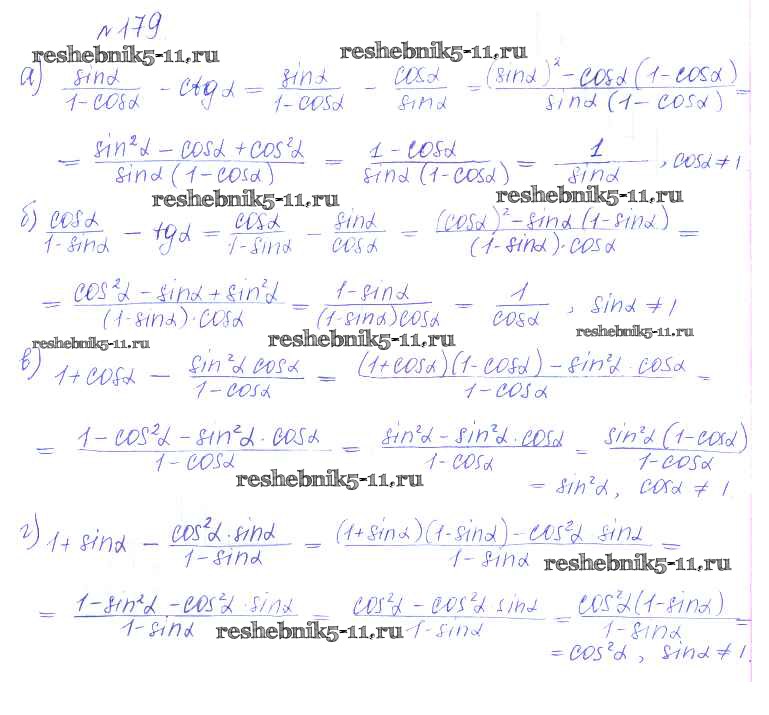 №179
reshebnik5-11.ru reshebnik5-11.ru
а) sinα/(1-cosα) - ctgα = sinα/(1-cosα) - cosα/sinα = ((sinα)² - cosα(1-cosα))/(sinα(1-cosα)) =
= (sin²α - cosα + cos²α)/(sinα(1-cosα)) = (1-cosα)/(sinα(1-cosα)) = 1/sinα , cosα ≠ 1
reshebnik5-11.ru reshebnik5-11.ru
б) cosα/(1-sinα) - tgα = cosα/(1-sinα) - sinα/cosα = ((cosα)² - sinα(1-sinα))/((1-sinα)·cosα) =
= (cos²α - sinα + sin²α)/((1-sinα)·cosα) = (1-sinα)/((1-sinα)cosα) = 1/cosα , sinα ≠ 1
reshebnik5-11.ru reshebnik5-11.ru reshebnik5-11.ru
в) 1+cosα - (sin²α cosα)/(1-cosα) = ((1+cosα)(1-cosα) - sin²α·cosα)/(1-cosα) =
= (1-cos²α - sin²α·cosα)/(1-cosα) = (sin²α - sin²α·cosα)/(1-cosα) = (sin²α(1-cosα))/(1-cosα)
reshebnik5-11.ru
= sin²α, cosα ≠ 1
г) 1+sinα - (cos²α·sinα)/(1-sinα) = ((1+sinα)(1-sinα) - cos²α sinα)/(1-sinα) =
reshebnik5-11.ru
= (1-sin²α - cos²α·sinα)/(1-sinα) = (cos²α - cos²α sinα)/(1-sinα) = (cos²α(1-sinα))/(1-sinα) =
reshebnik5-11.ru
= cos²α , sinα ≠ 1